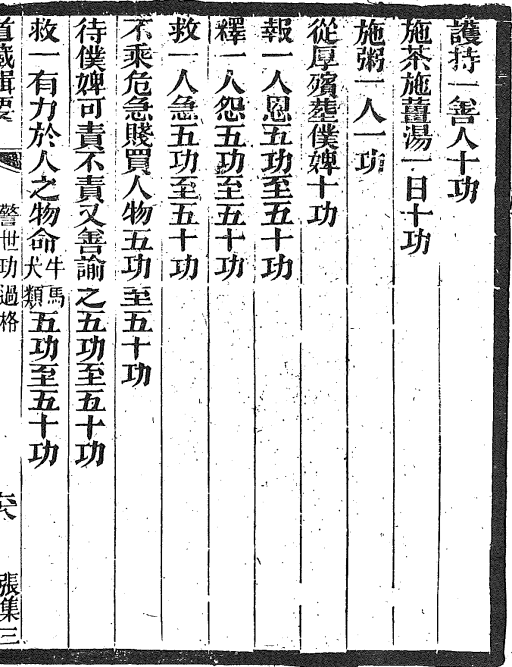 護持一善人十功
施茶施薑湯一日十功
施粥一人一功
從厚殯塟僕婢十功
報一人恩五功至五十功
釋一人怨五功至五十功
救一人急五功至五十功
不乘危急賤買人物五功至五十功
待僕婢可責不責又善諭之五功至五十功
救一有力於人之物命牛馬犬類五功至五十功
道藏輯要 警世功過格 張集三